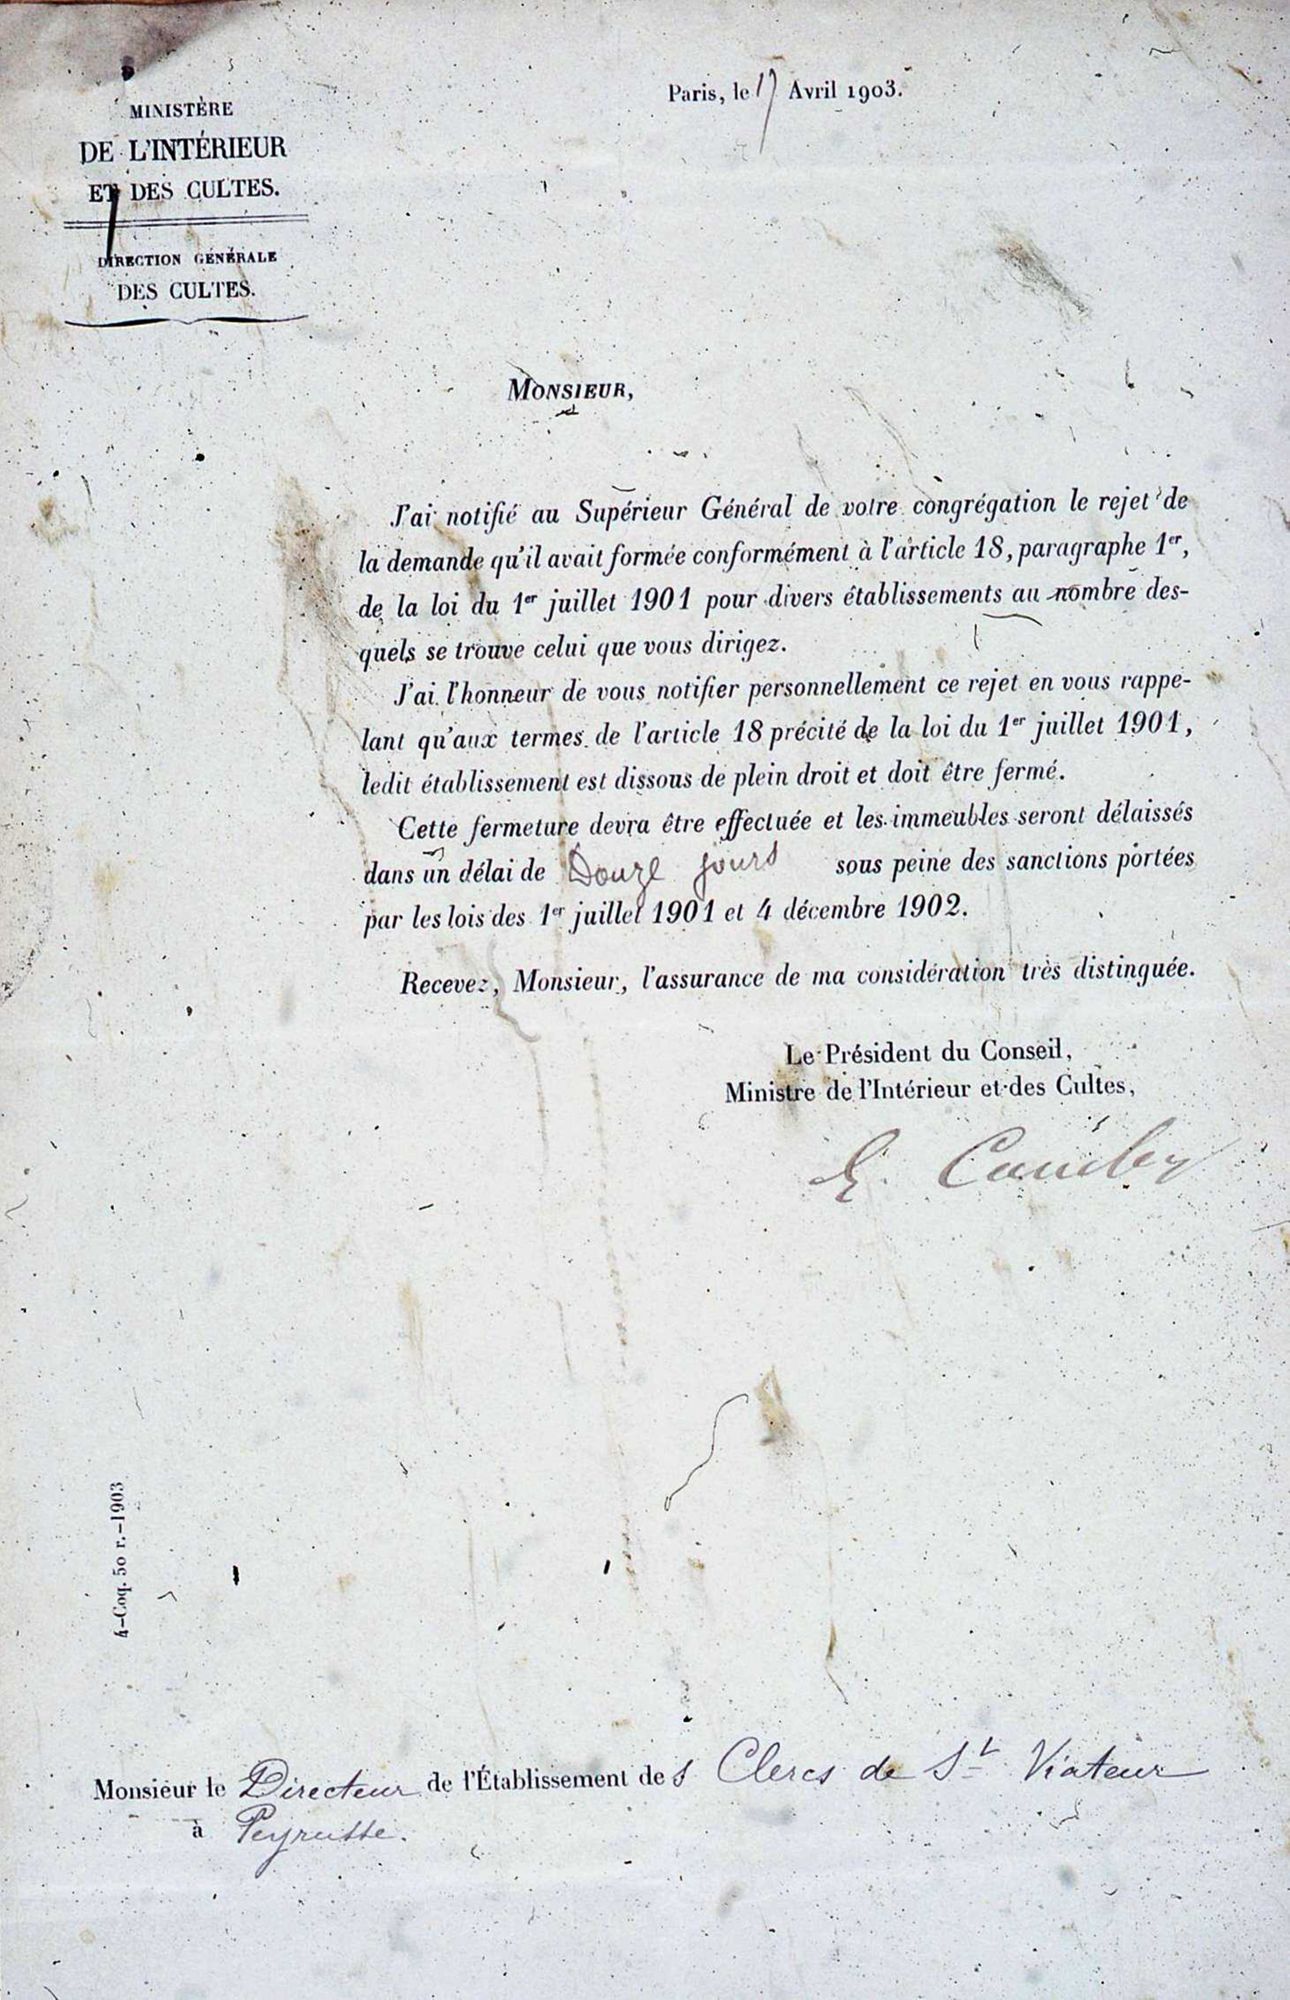 MINISTÈRE
DE L'INTÉRIEUR
ET DES CULTES.
DIRECTION GÉNÉRALE
DES CULTES.
Paris, le 17 Avril 1903.
MONSIEUR,
J'ai notifié au Supérieur Général de votre congrégation le rejet de
la demande qu'il avait formée conformément à l'article 18, paragraphe 1er,
de la loi du 1er juillet 1901 pour divers établissements au nombre des-
quels se trouve celui que vous dirigez.
J'ai l'honneur de vous notifier personnellement ce rejet en vous rappe-
lant qu'aux termes de l'article 18 précité de la loi du 1er juillet 1901,
ledit établissement est dissous de plein droit et doit être fermé.
Cette fermeture devra être effectuée et les immeubles seront délaissés
dans un délai de Douze jours sous peine des sanctions portées
par les lois des 1er juillet 1901 et 4 décembre 1902.
Recevez, Monsieur, l'assurance de ma considération très distinguée.
Le Président du Conseil,
Ministre de l'Intérieur et des Cultes,
E. Combes
4-Coq. 50 r.-1903
Monsieur le Directeur de l'Établissement des Clercs de St Viateur
à Peyrusse.